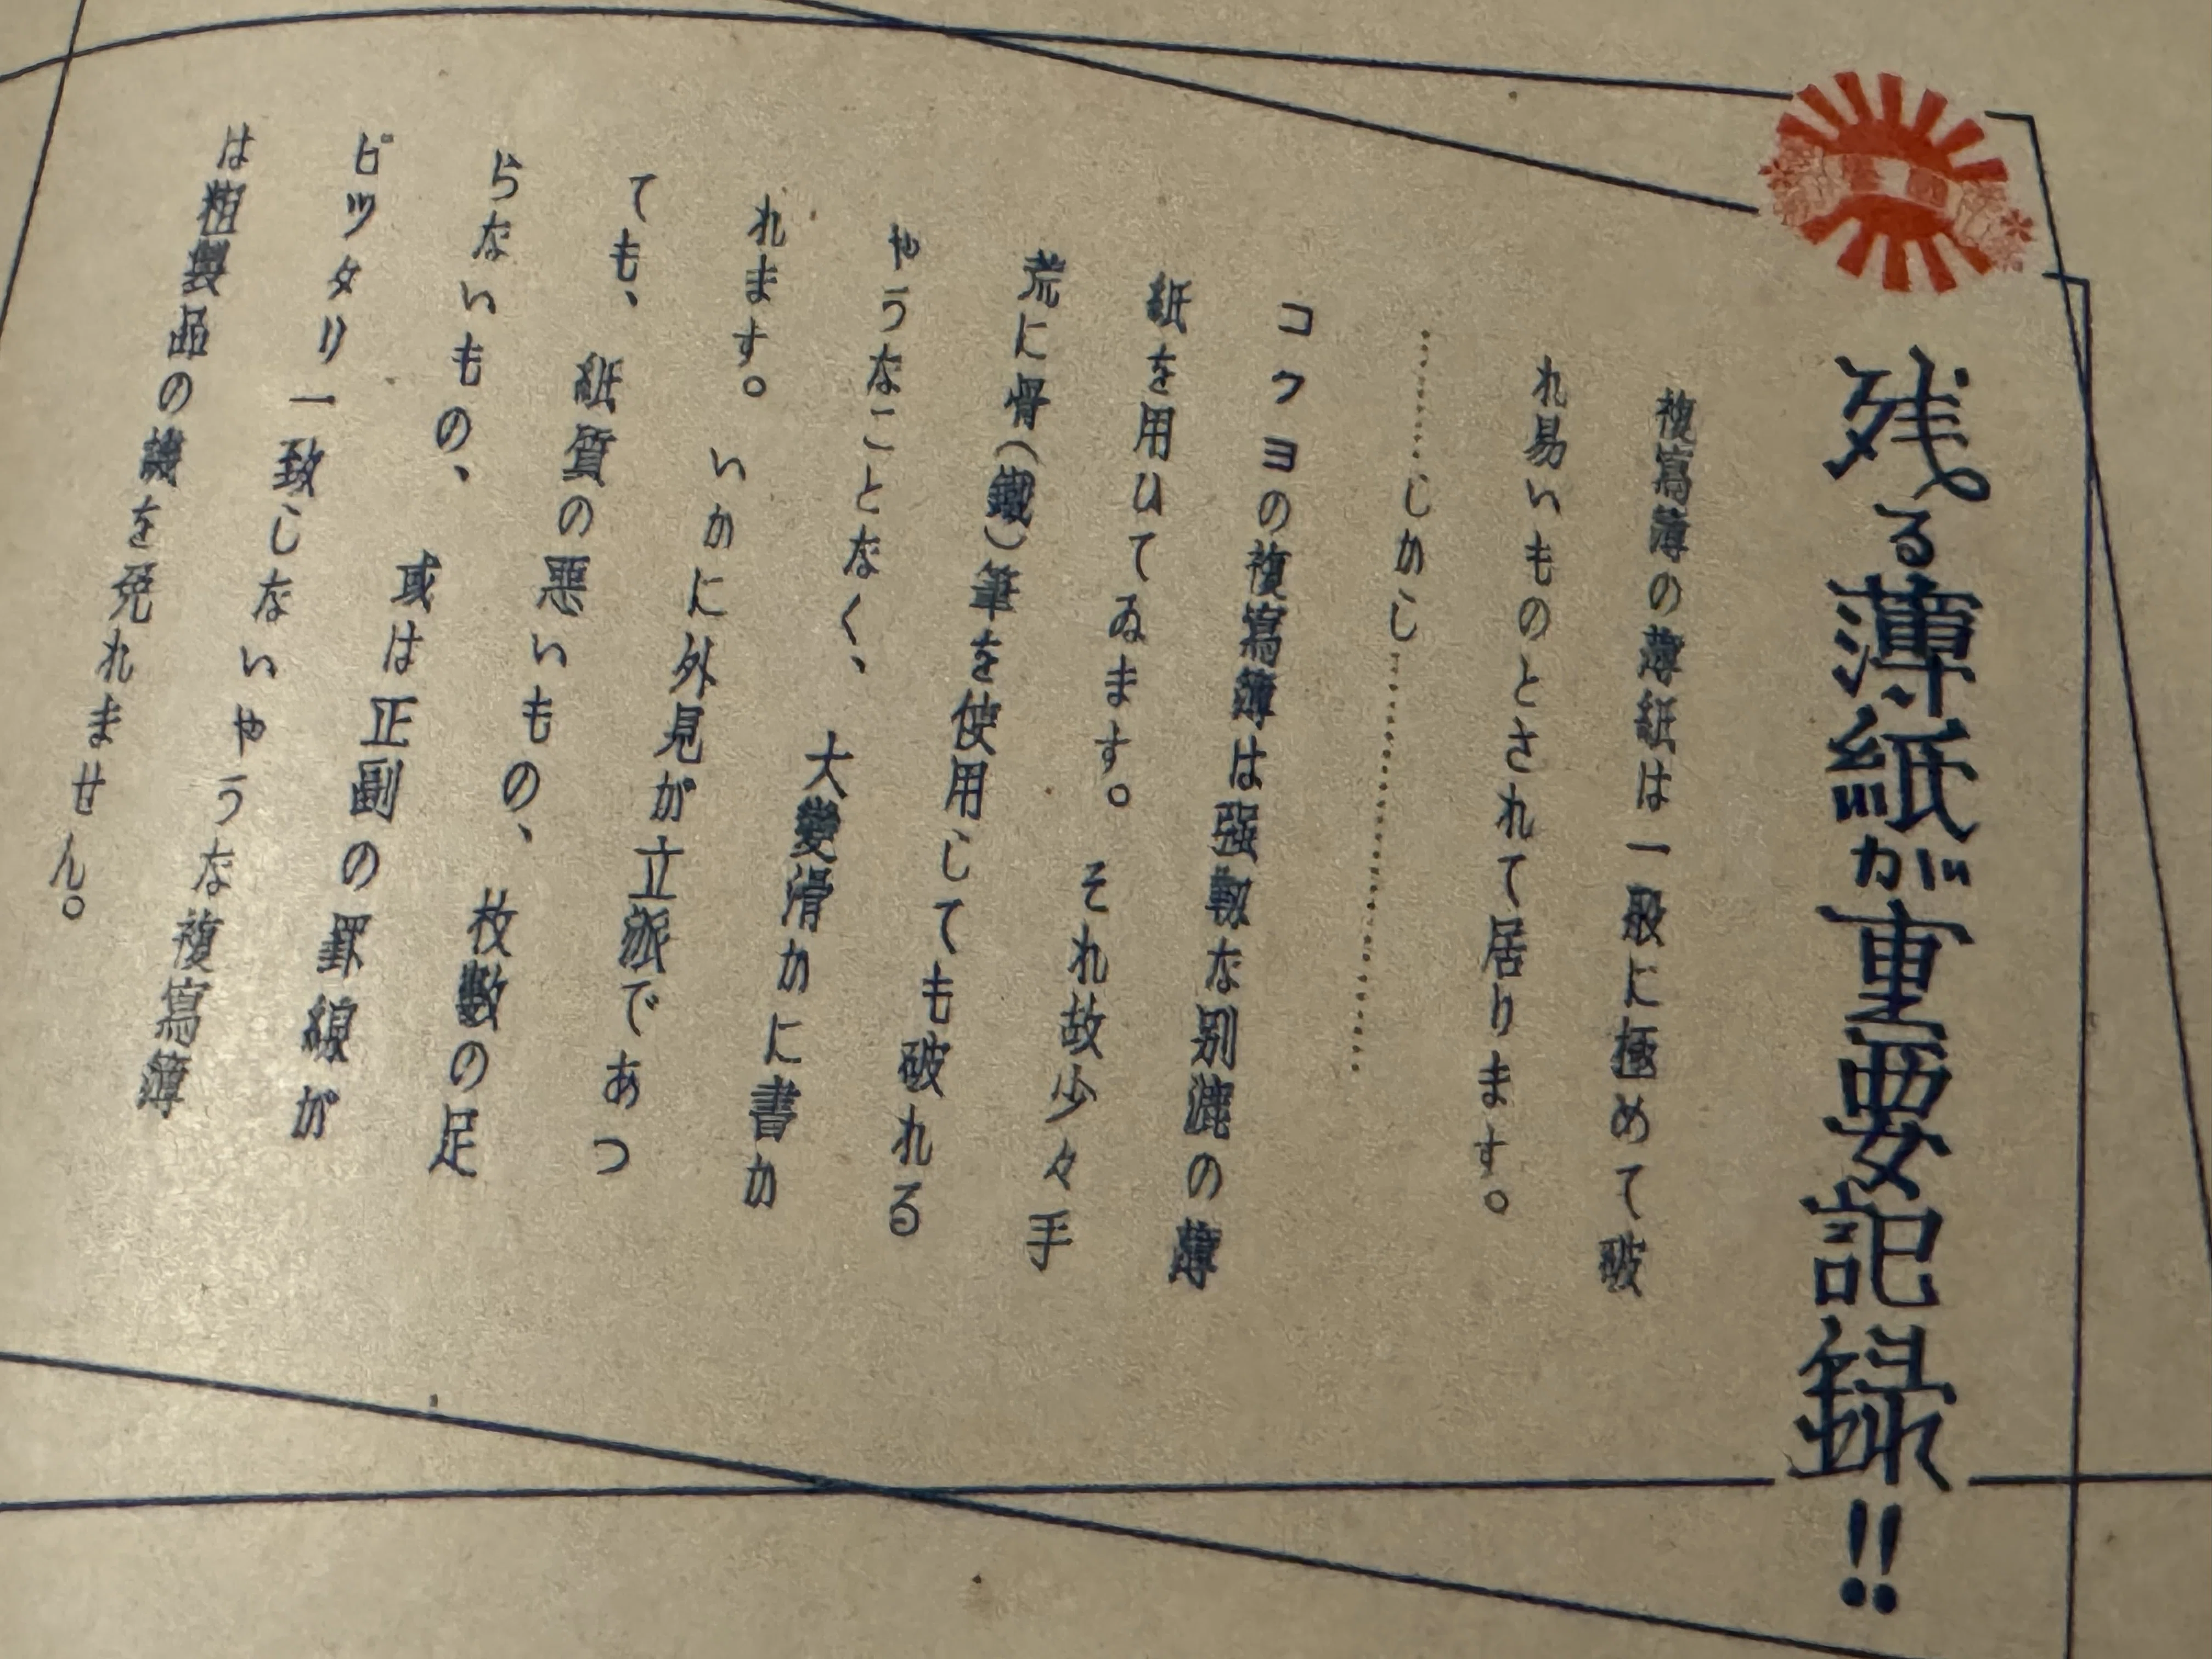 残る薄紙が重要記録!!
複寫簿の薄紙は一般に極めて破
れ易いものとされて居ります。
………しかし………………………
コクヨの複寫簿は強靱な別漉の薄
紙を用ひてゐます。それ故少々手
荒に骨(鐵)筆を使用しても破れる
やうなことなく、大變滑かに書か
れます。いかに外見が立派であつ
ても、紙質の悪いもの、枚數の足
らないもの、或は正副の罫線が
ピツタリ一致しないやうな複寫簿
は粗製品の譏を免れません。